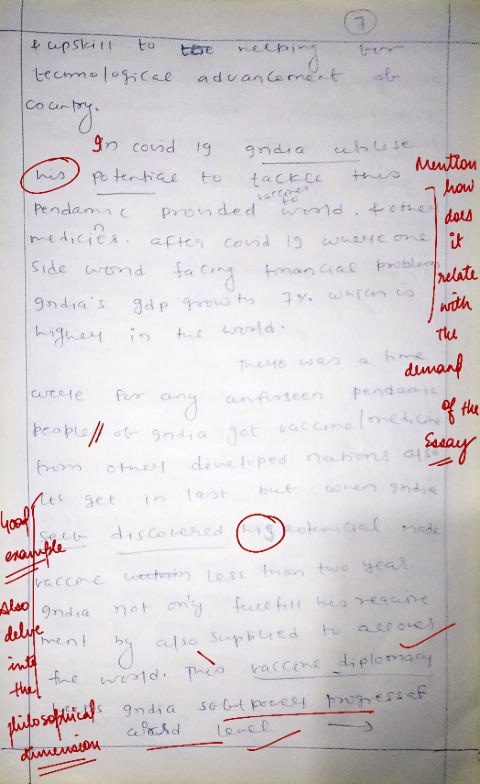 7
& upskill to the helping for
technological advancement of
country.
In covid 19 India utilise
his potential to tackle this
vaccines
pendamic provided to world. & other
medicines. after covid 19 where one
side world facing financial problem
India's gdp growth 7% which is
higher in the world.
There was a time
were for any unforseen pendamic
people of India got vaccine/medicine
from other developed nations also
US get in last but when India
discovered his potencial made
vaccine within less than two year
India not only fulfill his require
ment by also supplied to all over
the world. This vaccine diplomacy
India soft power progress at
world level
Mention
how
does
it
relate
with
the
demand
of the
Essay
Good
example
Also
delve
into
the
philosophical
dimension